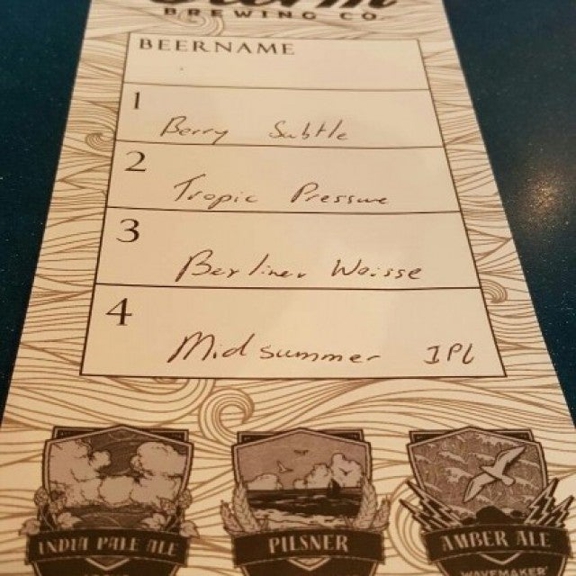 BREWING CO.
BEERNAME
1 Berry Subtle
2 Tropic Pressure
3 Berliner Weisse
4 Midsummer IPL
INDIA PALE ALE
PILSNER
AMBER ALE
WAVEMAKER